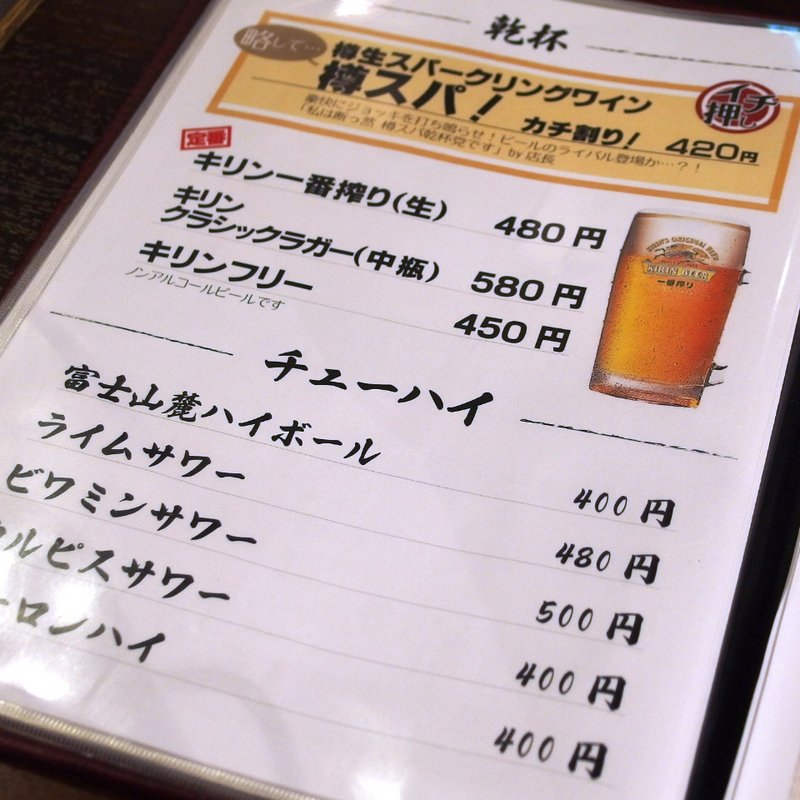 乾杯
略して…
樽生スパークリングワイン
樽スパ！ カチ割り！ 420円
イチ押し
豪快にジョッキを打ち鳴らせ！ビールのライバル登場か…？！
「私は断っ然 樽スパ乾杯党です」by 店長
定番
キリン一番搾り(生) 480円
キリン
クラシックラガー(中瓶) 580円
キリンフリー 450円
ノンアルコールビールです
KIRIN'S ORIGINAL BREW
KIRIN BEER
一番搾り
チューハイ
富士山麓ハイボール 400円
ライムサワー 480円
ビワミンサワー 500円
ルピスサワー 400円
ロンハイ 400円